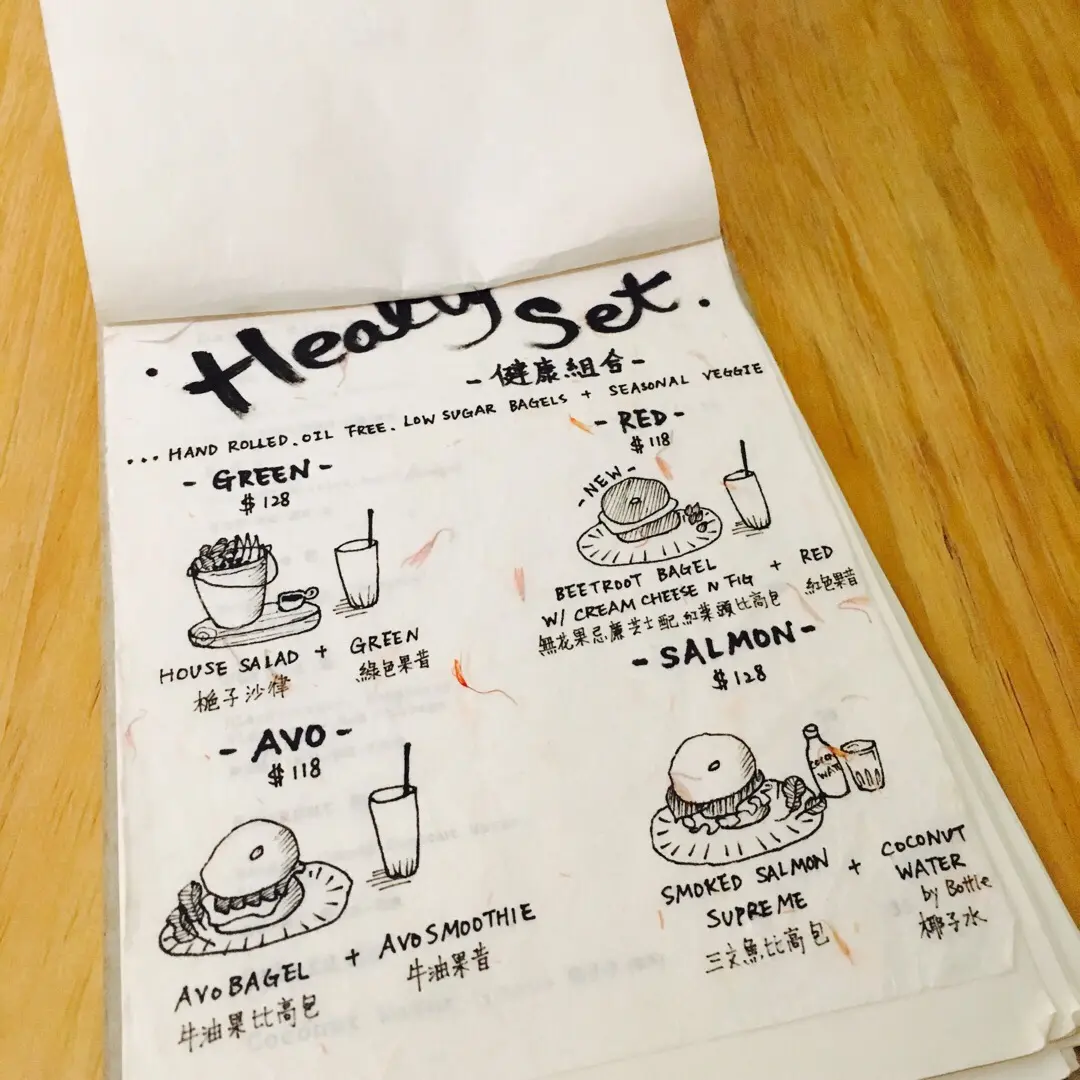 . Healty Set .
- 健康組合 -
... HAND ROLLED. OIL FREE. LOW SUGAR BAGELS + SEASONAL VEGGIE
- GREEN -
$ 128
HOUSE SALAD + GREEN
梔子沙律 綠色果昔
- RED -
$ 118
- NEW -
BEETROOT BAGEL + RED
W/ CREAM CHEESE N FIG 紅色果昔
無花果忌廉芝士配紅菜頭比高包
- AVO -
$ 118
AVO BAGEL + AVO SMOOTHIE
牛油果比高包 牛油果昔
- SALMON -
$ 128
SMOKED SALMON + COCONUT
SUPREME WATER
by Bottle
三文魚比高包 椰子水